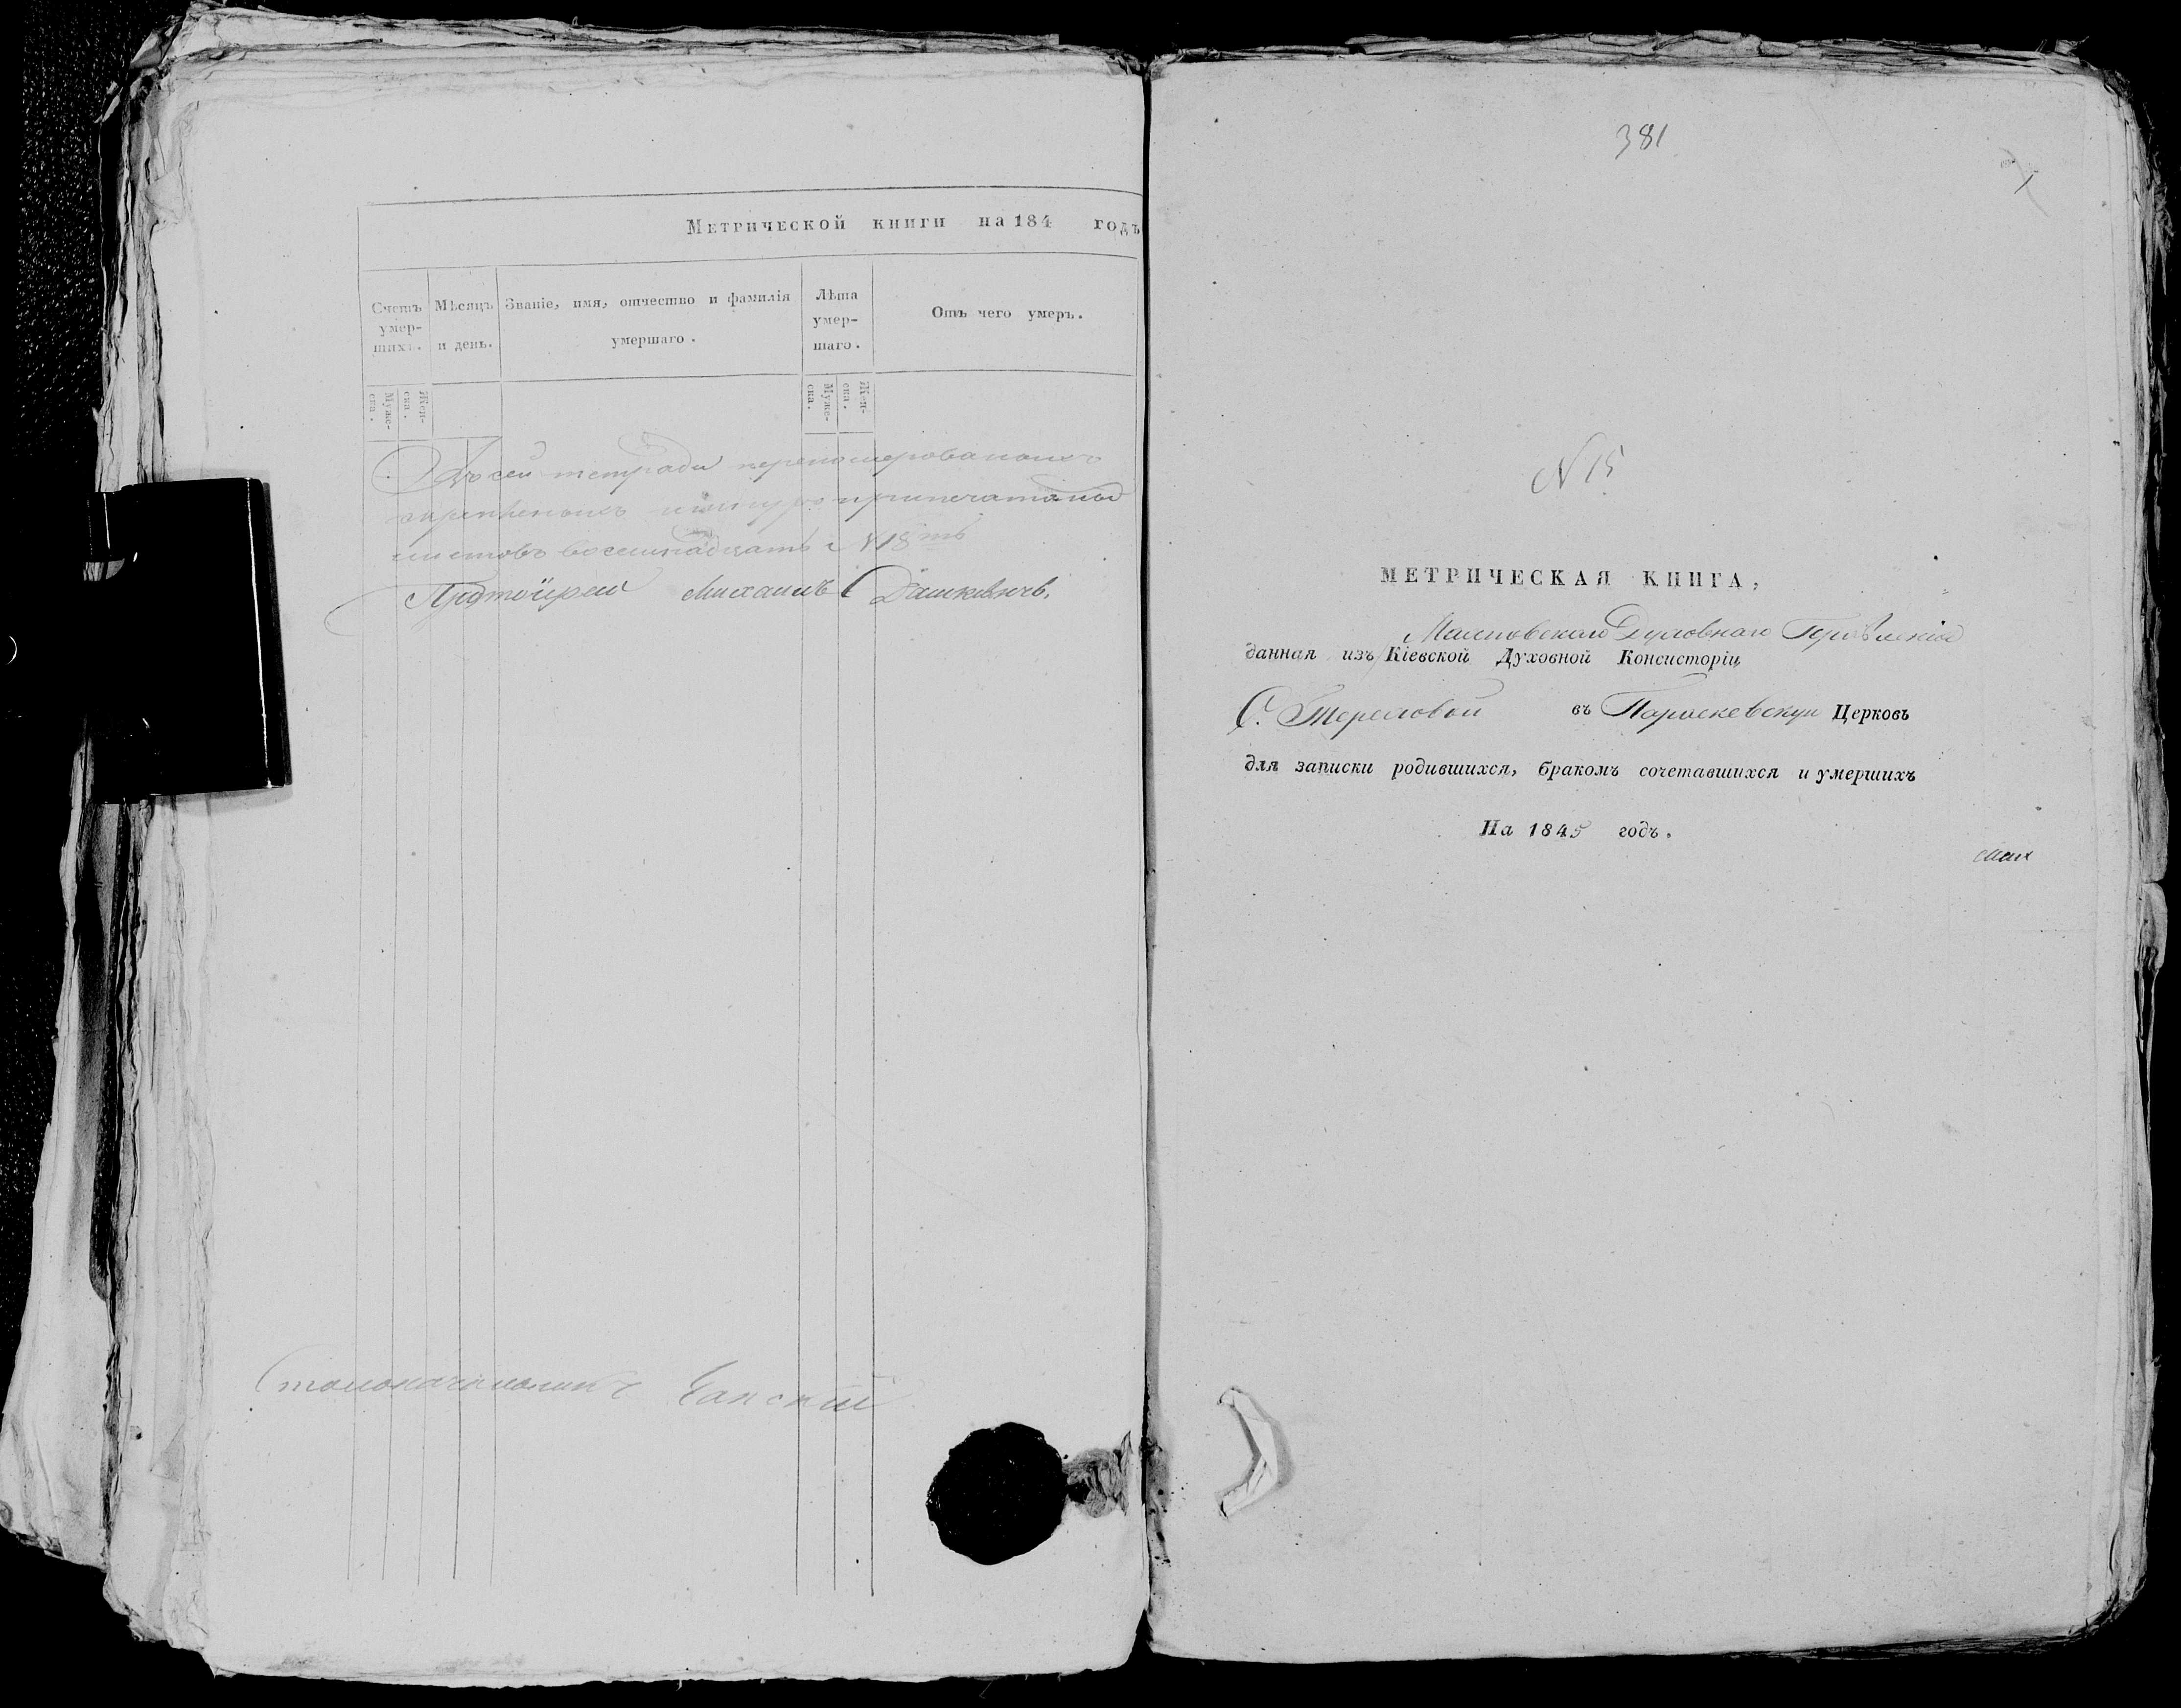 Метрической книги на 184 годъ
Счетъ умер-
шихъ.
Мѣсяцъ
и день.
Званіе, имя, отчество и фамилія
умершаго.
Лѣта
умер-
шаго.
Отъ чего умеръ.
Муже-
ска.
Жен-
ска.
Муже-
ска.
Жен-
ска.
Въ сей тетради перенумерованныхъ
скрепленныхъ шнуро припечатаны
листовъ восемнадцать № 18ть
Протоіерей Михаилъ Дашкевичъ.
Столоначальникъ
381
N 15
МЕТРИЧЕСКАЯ КНИГА,
Духовнаго Правленія
данная изъ Кіевской Духовной Консисторіи
С. въ Параскевскую Церковь
для записки родившихся, бракомъ сочетавшихся и умершихъ
На 1845 годъ.
Мих